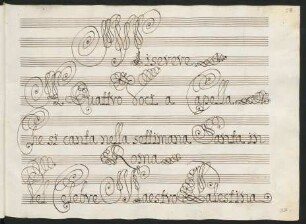 Miserere
A Quattro voci a Capella
che si canta nella settimana Santa in
Roma
Del Celebre Maestro Palestina